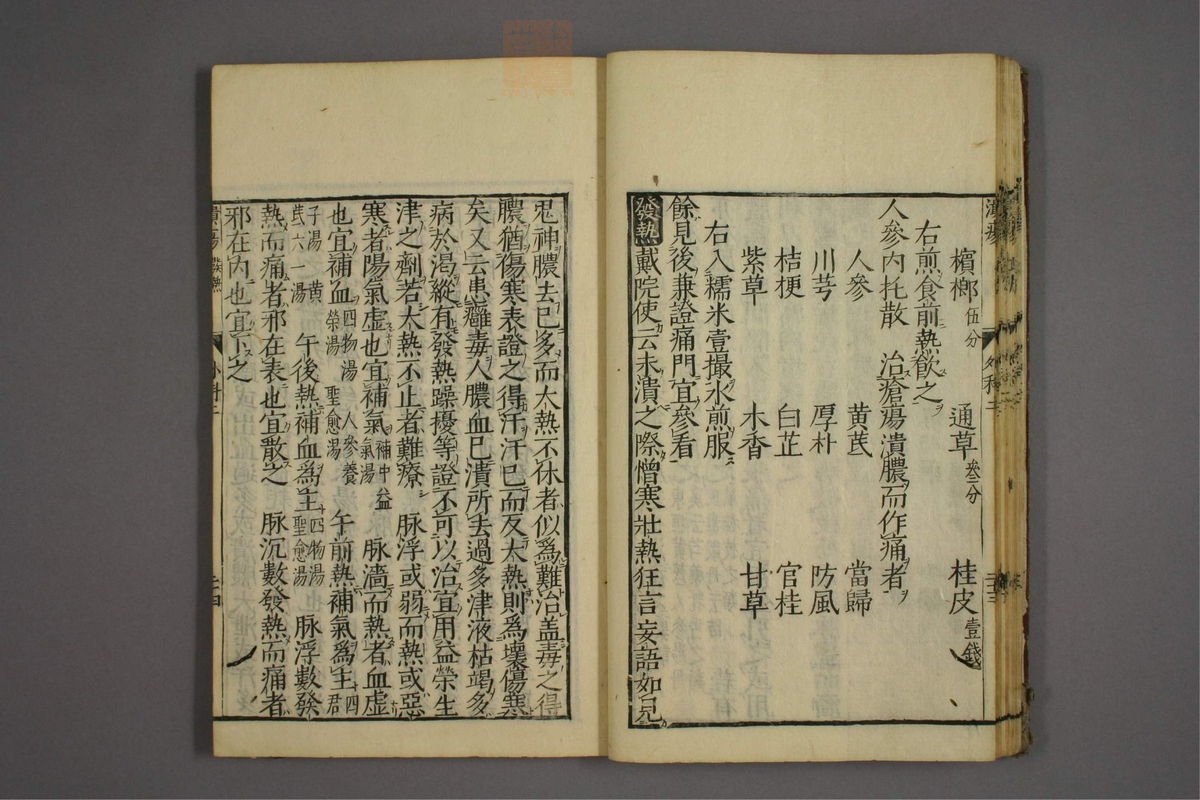 潰瘍 外科二
檳榔伍分 通草叁分 桂皮壹錢
右煎食前熱飲之
人參內托散 治瘡瘍潰膿而作痛者
人參 黃芪 當歸
川芎 厚朴 防風
桔梗 白芷 官桂
紫草 木香 甘草
右入糯米壹撮水煎服
餘見後兼證痛門宜參看
發熱戴院使云未潰之際憎寒壯熱狂言妄語如見
鬼神膿去已多而大熱不休者似爲難治盖毒之得
膿猶傷寒表證之得汗汗已而反大熱則爲壞傷寒
矣又云患癰毒人膿血已潰所去過多津液枯竭多
病於渴縱有發熱躁擾等證不可以治宜用益榮生
津之劑若大熱不止者難療 脉浮或弱而熱或惡
寒者陽氣虛也宜補氣補中益氣湯 脉濇而熱者血虛
也宜補血四物湯 人參養榮湯 聖愈湯 午前熱補氣爲主四君
子湯 黃芪六一湯 午後熱補血爲主四物湯 聖愈湯 脉浮數發
熱而痛者邪在表也宜散之 脉沉數發熱而痛者
邪在內也宜下之
潰瘍 發熱 外科二 二十四